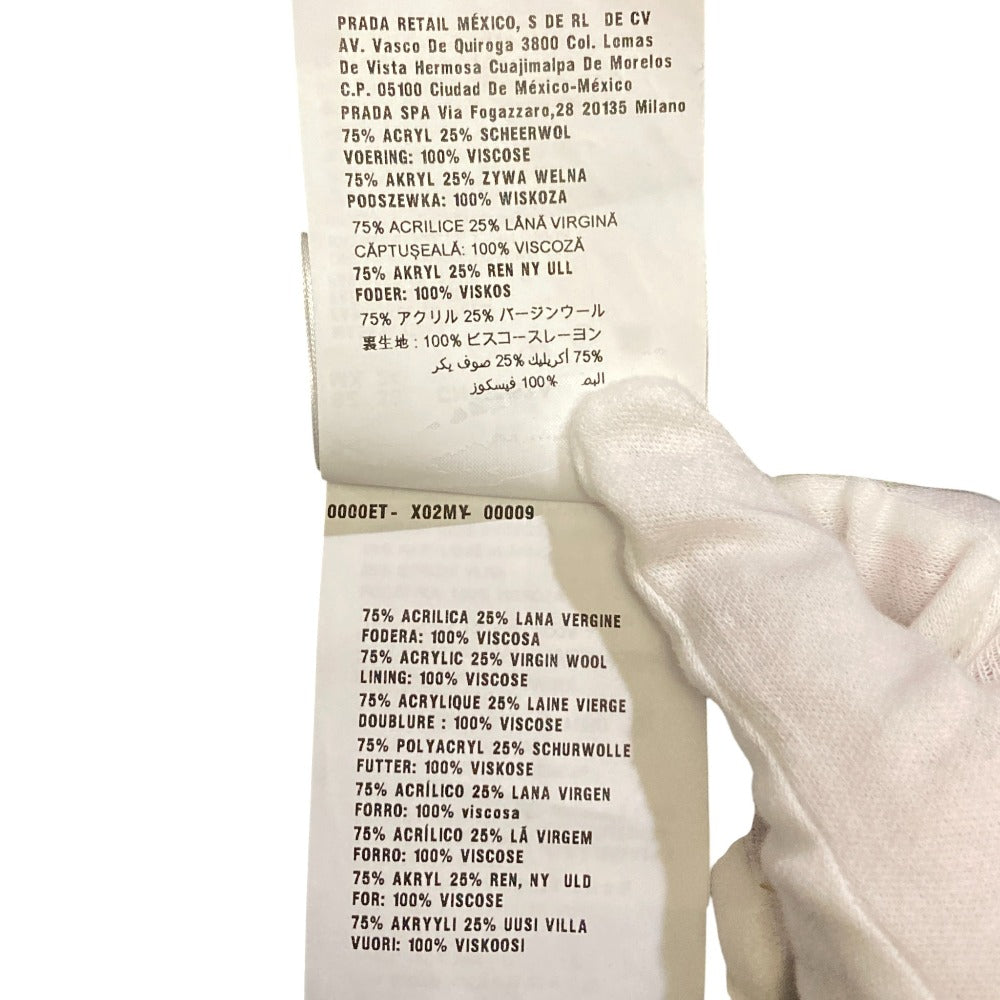 PRADA RETAIL MÉXICO, S DE RL DE CV
AV. Vasco De Quiroga 3800 Col. Lomas
De Vista Hermosa Cuajimalpa De Morelos
C.P. 05100 Ciudad De México-México
PRADA SPA Via Fogazzaro,28 20135 Milano
75% ACRYL 25% SCHEERWOL
VOERING: 100% VISCOSE
75% AKRYL 25% ZYWA WELNA
PODSZEWKA: 100% WISKOZA
75% ACRILICE 25% LÂNĂ VIRGINĂ
CĂPTUȘEALĂ: 100% VISCOZĂ
75% AKRYL 25% REN NY ULL
FODER: 100% VISKOS
75% アクリル 25% バージンウール
裏生地 : 100% ビスコースレーヨン
75% أكريليك 25% صوف يكر
100% فيسكوز
0000ET- X02MY- 00009
75% ACRILICA 25% LANA VERGINE
FODERA: 100% VISCOSA
75% ACRYLIC 25% VIRGIN WOOL
LINING: 100% VISCOSE
75% ACRYLIQUE 25% LAINE VIERGE
DOUBLURE : 100% VISCOSE
75% POLYACRYL 25% SCHURWOLLE
FUTTER: 100% VISKOSE
75% ACRÍLICO 25% LANA VIRGEN
FORRO: 100% viscosa
75% ACRÍLICO 25% LÃ VIRGEM
FORRO: 100% VISCOSE
75% AKRYL 25% REN, NY ULD
FOR: 100% VISCOSE
75% AKRYYLI 25% UUSI VILLA
VUORI: 100% VISKOOSI